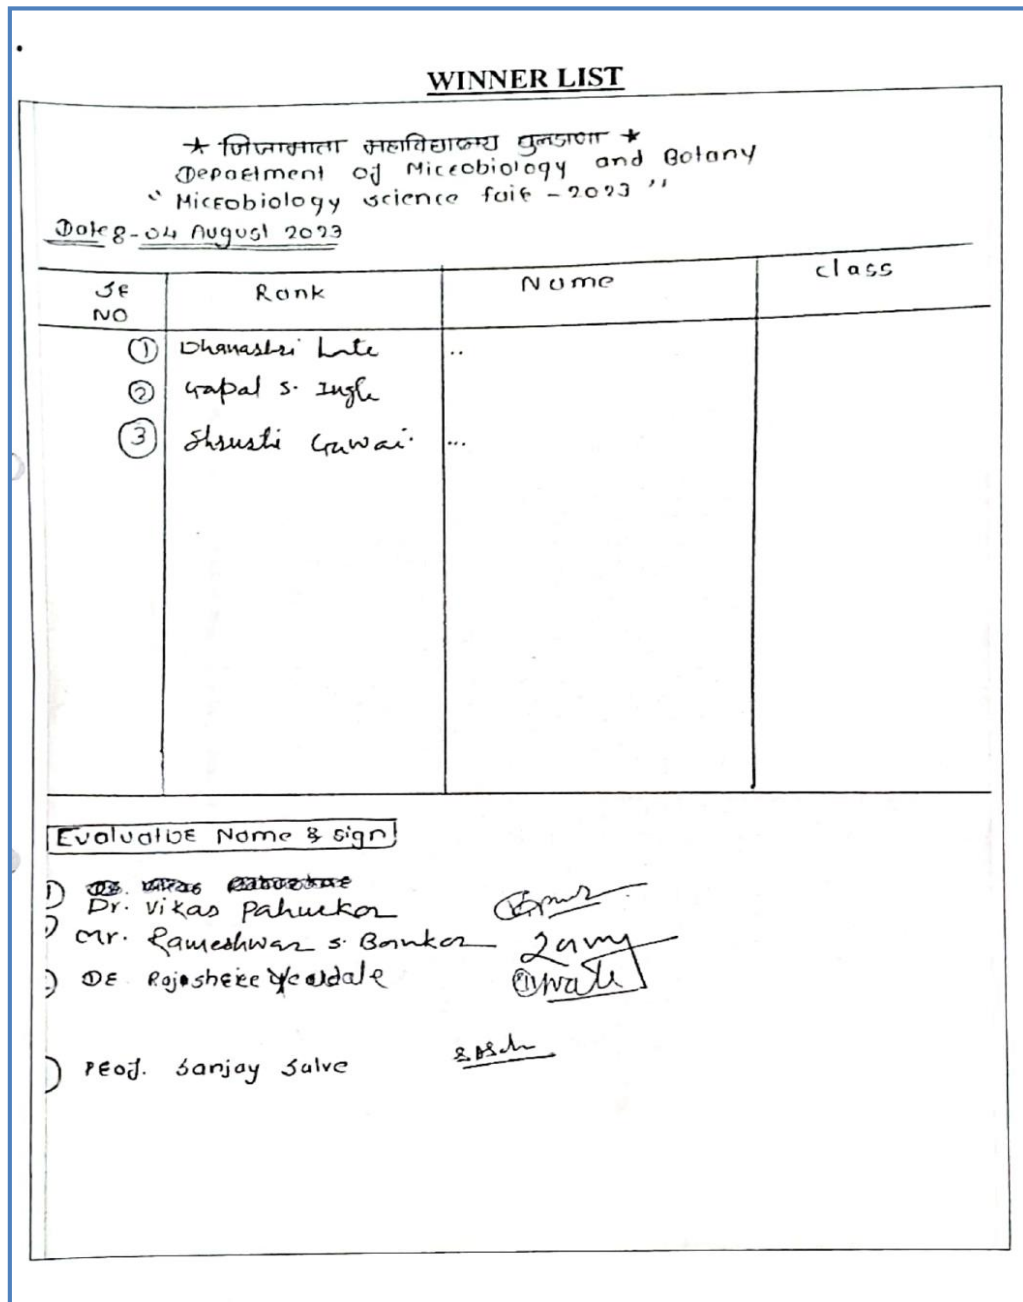 WINNER LIST
★ जिजामाता महाविद्यालय बुलडाणा ★
Department of Microbiology and Botany
" Microbiology science fair - 2023 "
Date 8-04 August 2023
Sr NO Rank Name class
① Dhanashri Late ..
② Gapal S. Ingle
③ Shrusti Gawai. ...
Evaluator Name & sign
1) Dr. Vikas Pahurkar
Mr. Rameshwar S. Bankar
Dr. Rajashree
Prof. Sanjay Salve